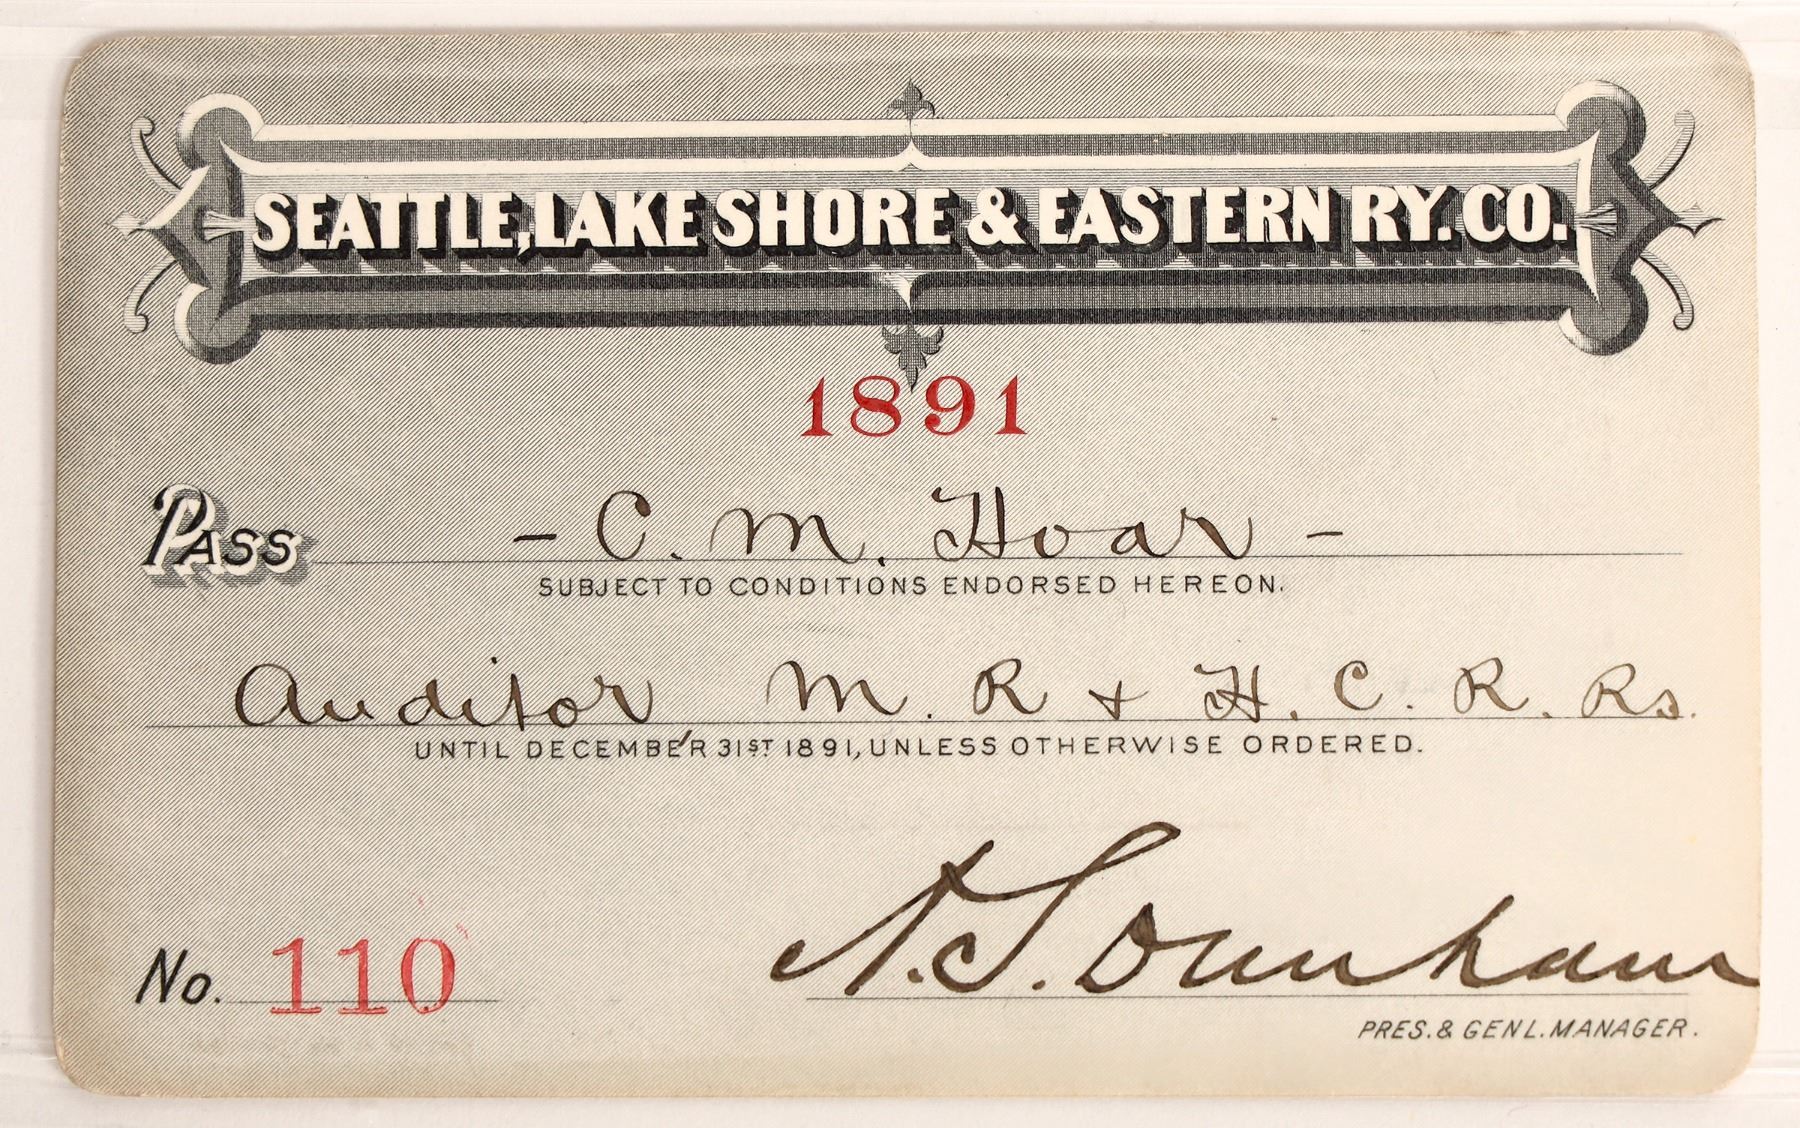 SEATTLE, LAKE SHORE & EASTERN RY. CO.
1891
PASS - C. M. Hoar -
SUBJECT TO CONDITIONS ENDORSED HEREON.
Auditor, M. R & H. C. R. Rs.
UNTIL DECEMBER 31ST 1891, UNLESS OTHERWISE ORDERED.
No. 110
A. S. Dunham
PRES. & GENL. MANAGER.